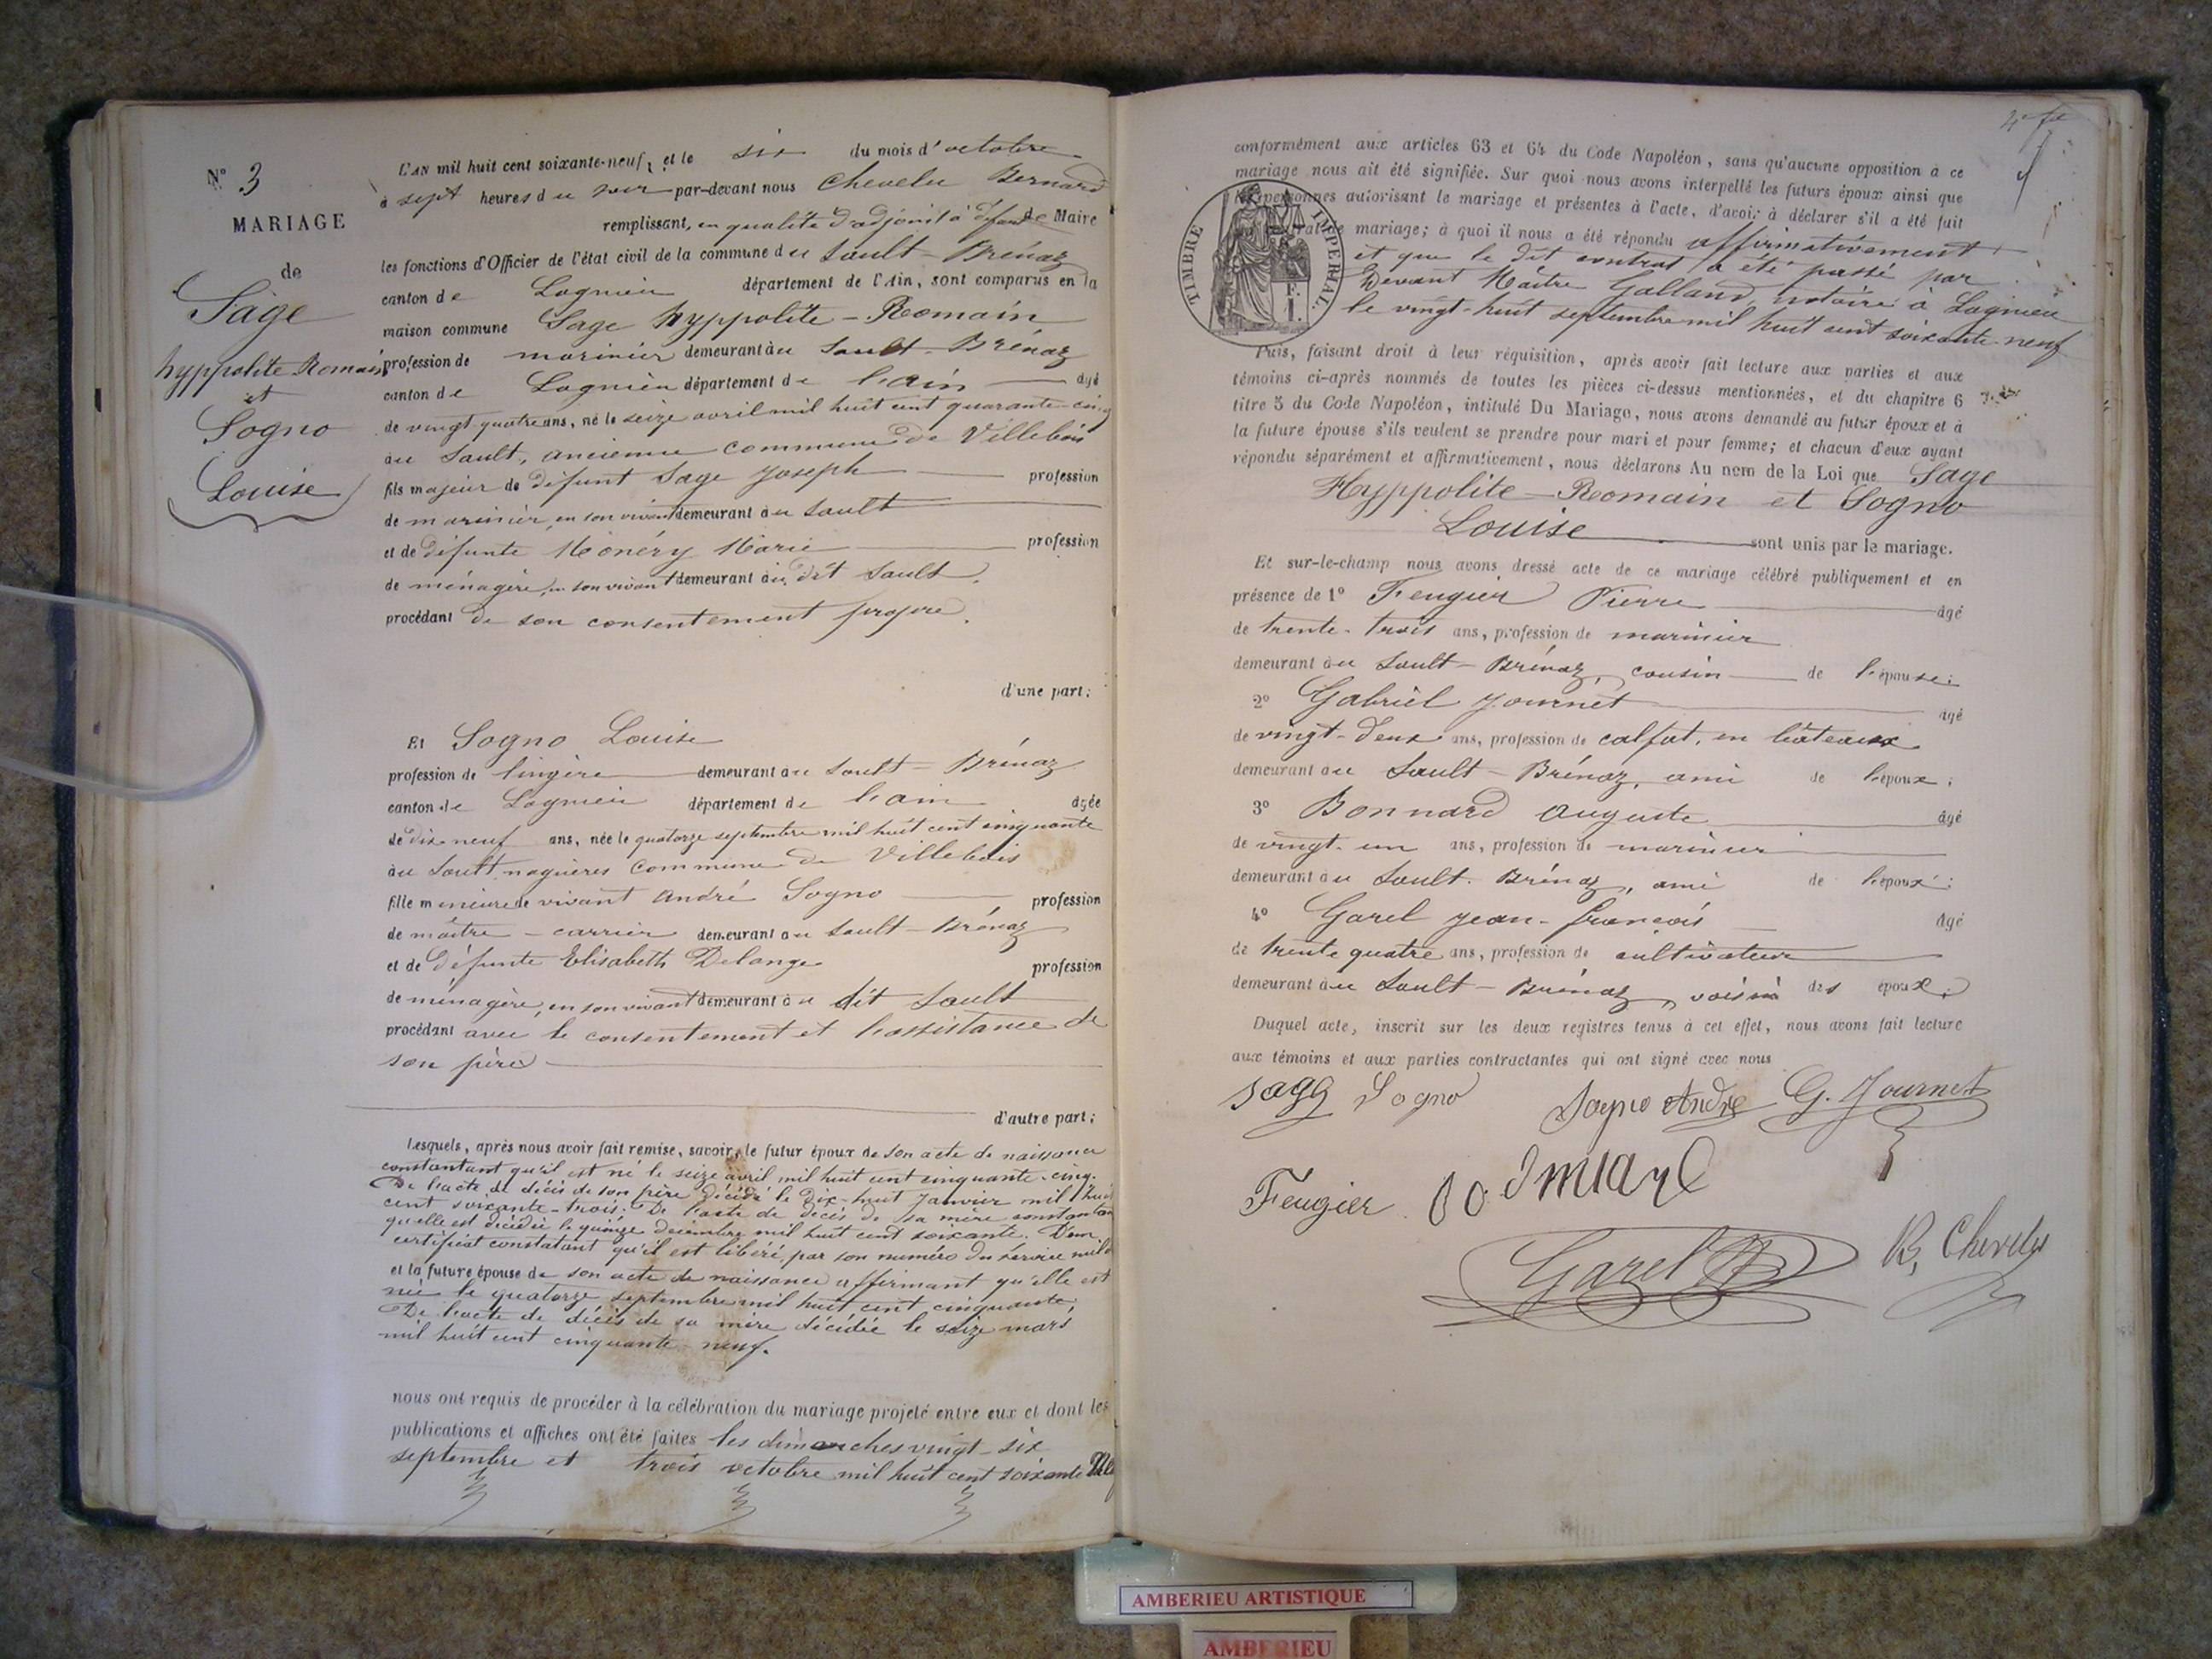 N° 3
MARIAGE
de
Sage
hyppolite Romain
et
Sogno
Louise
L'AN mil huit cent soixante-neuf, et le six du mois d'octobre
à sept heures du soir par-devant nous Chevelu Bernard
remplissant, en qualité d'adjoint à défaut de Maire
les fonctions d'Officier de l'état civil de la commune du Sault-Brénaz
canton de Lagnieu département de l'Ain, sont comparus en la
maison commune Sage hyppolite-Romain
profession de marinier demeurant au Sault-Brénaz
canton de Lagnieu département de l'ain âgé
de vingt quatre ans, né le seize avril mil huit cent quarante-cinq
au Sault, ancienne commune de Villebois
fils majeur de défunt Sage Joseph profession
de marinier, en son vivant demeurant au Sault
et de défunte Monéry Marie profession
de ménagère, en son vivant demeurant au dit Sault.
procédant de son consentement propre.
d'une part;
Et Sogno Louise
profession de lingère demeurant au Sault-Brénaz
canton de Lagnieu département de l'ain âgée
de dix-neuf ans, née le quatorze septembre mil huit cent cinquante
au Sault, naguères commune de Villebois
fille mineure de vivant André Sogno profession
de maître-carrier demeurant au Sault-Brénaz
et de défunte Elisabeth Delange profession
de ménagère, en son vivant demeurant au dit Sault
procédant avec le consentement et l'assistance de
son père
d'autre part;
Lesquels, après nous avoir fait remise, savoir, le futur époux de son acte de naissance
constantant qu'il est né le seize avril mil huit cent cinquante-cinq.
De l'acte de décès de son père décédé le dix-huit Janvier mil huit
cent soixante-trois. De l'acte de décès de sa mère constantan
qu'elle est décédée le quinze décembre mil huit cent soixante. D'un
certificat constatant qu'il est libéré par son numéro du service mil
et la future épouse de son acte de naissance affirmant qu'elle est
née le quatorze septembre mil huit cent cinquante,
De l'acte de décès de sa mère décédée le seize mars
mil huit cent cinquante-neuf.
nous ont requis de procéder à la célébration du mariage projeté entre eux et dont les
publications et affiches ont été faites les dimanches vingt-six
septembre et trois octobre mil huit cent soixante
conformément aux articles 63 et 64 du Code Napoléon, sans qu'aucune opposition à ce
mariage nous ait été signifiée. Sur quoi nous avons interpellé les futurs époux ainsi que
les personnes autorisant le mariage et présentes à l'acte, d'avoir à déclarer s'il a été fait
mariage; à quoi il nous a été répondu affirmativement
et que le dit contrat a été passé par
Devant Maître Galland, notaire à Lagnieu
le vingt-huit septembre mil huit cent soixante-neuf
TIMBRE IMPERIAL
1 F.
Puis, faisant droit à leur réquisition, après avoir fait lecture aux parties et aux
témoins ci-après nommés de toutes les pièces ci-dessus mentionnées, et du chapitre 6
titre 5 du Code Napoléon, intitulé Du Mariage, nous avons demandé au futur époux et à
la future épouse s'ils veulent se prendre pour mari et pour femme; et chacun d'eux ayant
répondu séparément et affirmativement, nous déclarons Au nom de la Loi que Sage
Hyppolite-Romain et Sogno
Louise sont unis par le mariage.
Et sur-le-champ nous avons dressé acte de ce mariage célébré publiquement et en
présence de 1° Feugier Pierre âgé
de trente-trois ans, profession de marinier
demeurant au Sault-Brénaz, cousin de l'épouse;
2° Gabriel Journet âgé
de vingt-deux ans, profession de calfat, en bateaux
demeurant au Sault-Brénaz, ami de l'époux;
3° Bonnard auguste âgé
de vingt-un ans, profession de marinier
demeurant au Sault-Brénaz, ami de l'époux;
4° Garel Jean-françois âgé
de trente quatre ans, profession de cultivateur
demeurant au Sault-Brénaz, voisin des époux.
Duquel acte, inscrit sur les deux registres tenus à cet effet, nous avons fait lecture
aux témoins et aux parties contractantes qui ont signé avec nous
Sage Sogno Sogno André G. Journet
Feugier
Garel B. Chevelu
AMBERIEU ARTISTIQUE
AMBERIEU